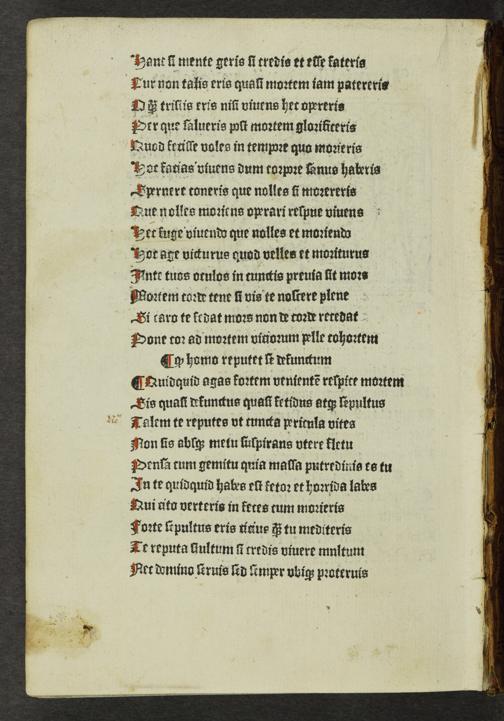 Hanc si mente geris si credis et esse fateris
Cur non talis eris quasi mortem iam patereris
O qȝ tristis eris nisi viuens hec opereris
Per que salueris post mortem glorificeris
Quod fecisse voles in tempore quo morieris
Hoc facias viuens dum corpore sanus haberis
Spernere coneris que nolles si morereris
Que nolles moriens operari respue viuens
Hec fuge viuendo que nolles et moriendo
Hoc age victurus quod velles et moriturus
Ante tuos oculos in cunctis preuia sit mors
Mortem corde tene si vis te noscere plene
Si caro te fedat mors non de corde recedat
Pone cor ad mortem viciorum pelle cohortem
¶ qꝫ homo reputet se defunctum
¶ Quidquid agas fortem venientē respice mortem
Sis quasi defunctus quasi fetidus atqꝫ sepultus
Talem te reputes vt cuncta pericula vites
Non sis absqꝫ metu suspirans vtere fletu
Pensa cum gemitu quia massa putredinis es tu
In te quidquid habes est fetor et horrida labes
Qui cito verteris in feces cum morieris
Forte sepultus eris cicius qȝ tu mediteris
Te reputa stultum si credis viuere mnltum
Nec domino seruis sed semper vbiqꝫ proteruis